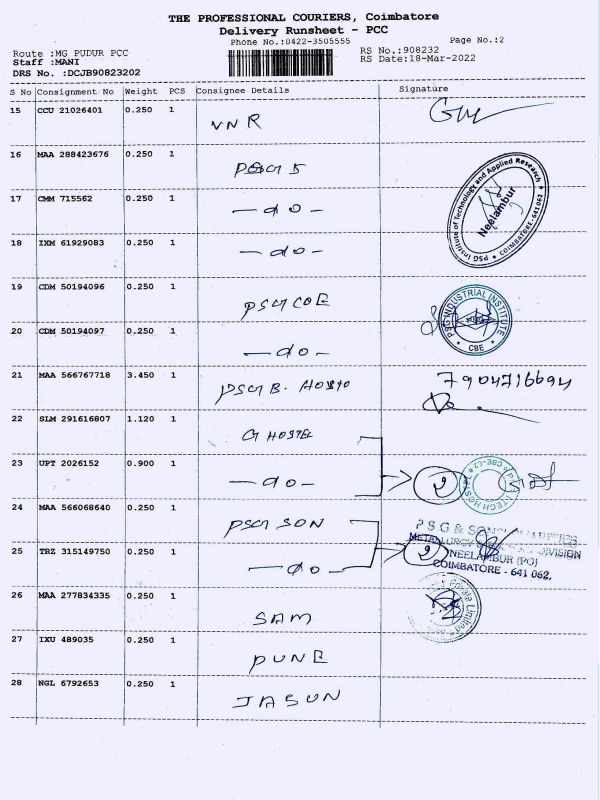 THE PROFESSIONAL COURIERS, Coimbatore
Delivery Runsheet - PCC
Phone No.:0422-3505555 Page No.:2
Route :MG PUDUR PCC RS No.:908232
Staff :MANI RS Date:18-Mar-2022
DRS No. :DCJB90823202
S No Consignment No Weight PCS Consignee Details Signature
15 CCU 21026401 0.250 1 VNR
16 MAA 288423676 0.250 1 PSG 5
17 CMM 715562 0.250 1 — do —
18 IXM 61929083 0.250 1 — do —
PSG Institute of Technology and Applied Research
Neelambur
COIMBATORE - 641 062
19 CDM 50194096 0.250 1 PSG COE
PSG INDUSTRIAL INSTITUTE
CBE
20 CDM 50194097 0.250 1 — do —
21 MAA 566767718 3.450 1 PSG B. 7904716694
22 SLM 291616807 1.120 1 G HOSTEL
23 UPT 2026152 0.900 1 — do — 2
24 MAA 566068640 0.250 1 PSG SON
PSG & SONS
METALLURGY DIVISION
25 TRZ 315149750 0.250 1 — do — 2
NEELAMBUR (PO)
COIMBATORE - 641 062.
26 MAA 277834335 0.250 1 SAM
27 IXU 489035 0.250 1 PUNE
28 NGL 6792653 0.250 1 JASUN